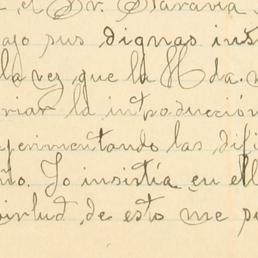 el Sr. Saravia
ajo sus dignas ins
la vez que la Hda.
riar la introducción
perimentando las difi
no. Yo insistía en ell
virtud de esto me p